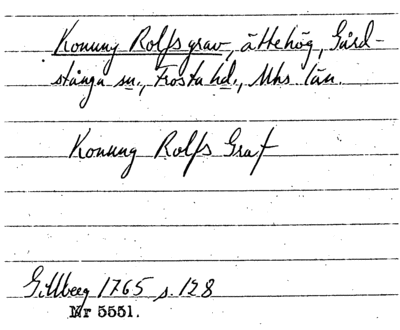 Konung Rolfs grav, ättehög, Gård-
stånga sn., Frosta hd., Mhs län.
Konung Rolfs Graf
Gillberg 1765 s. 128
Nr 5551.